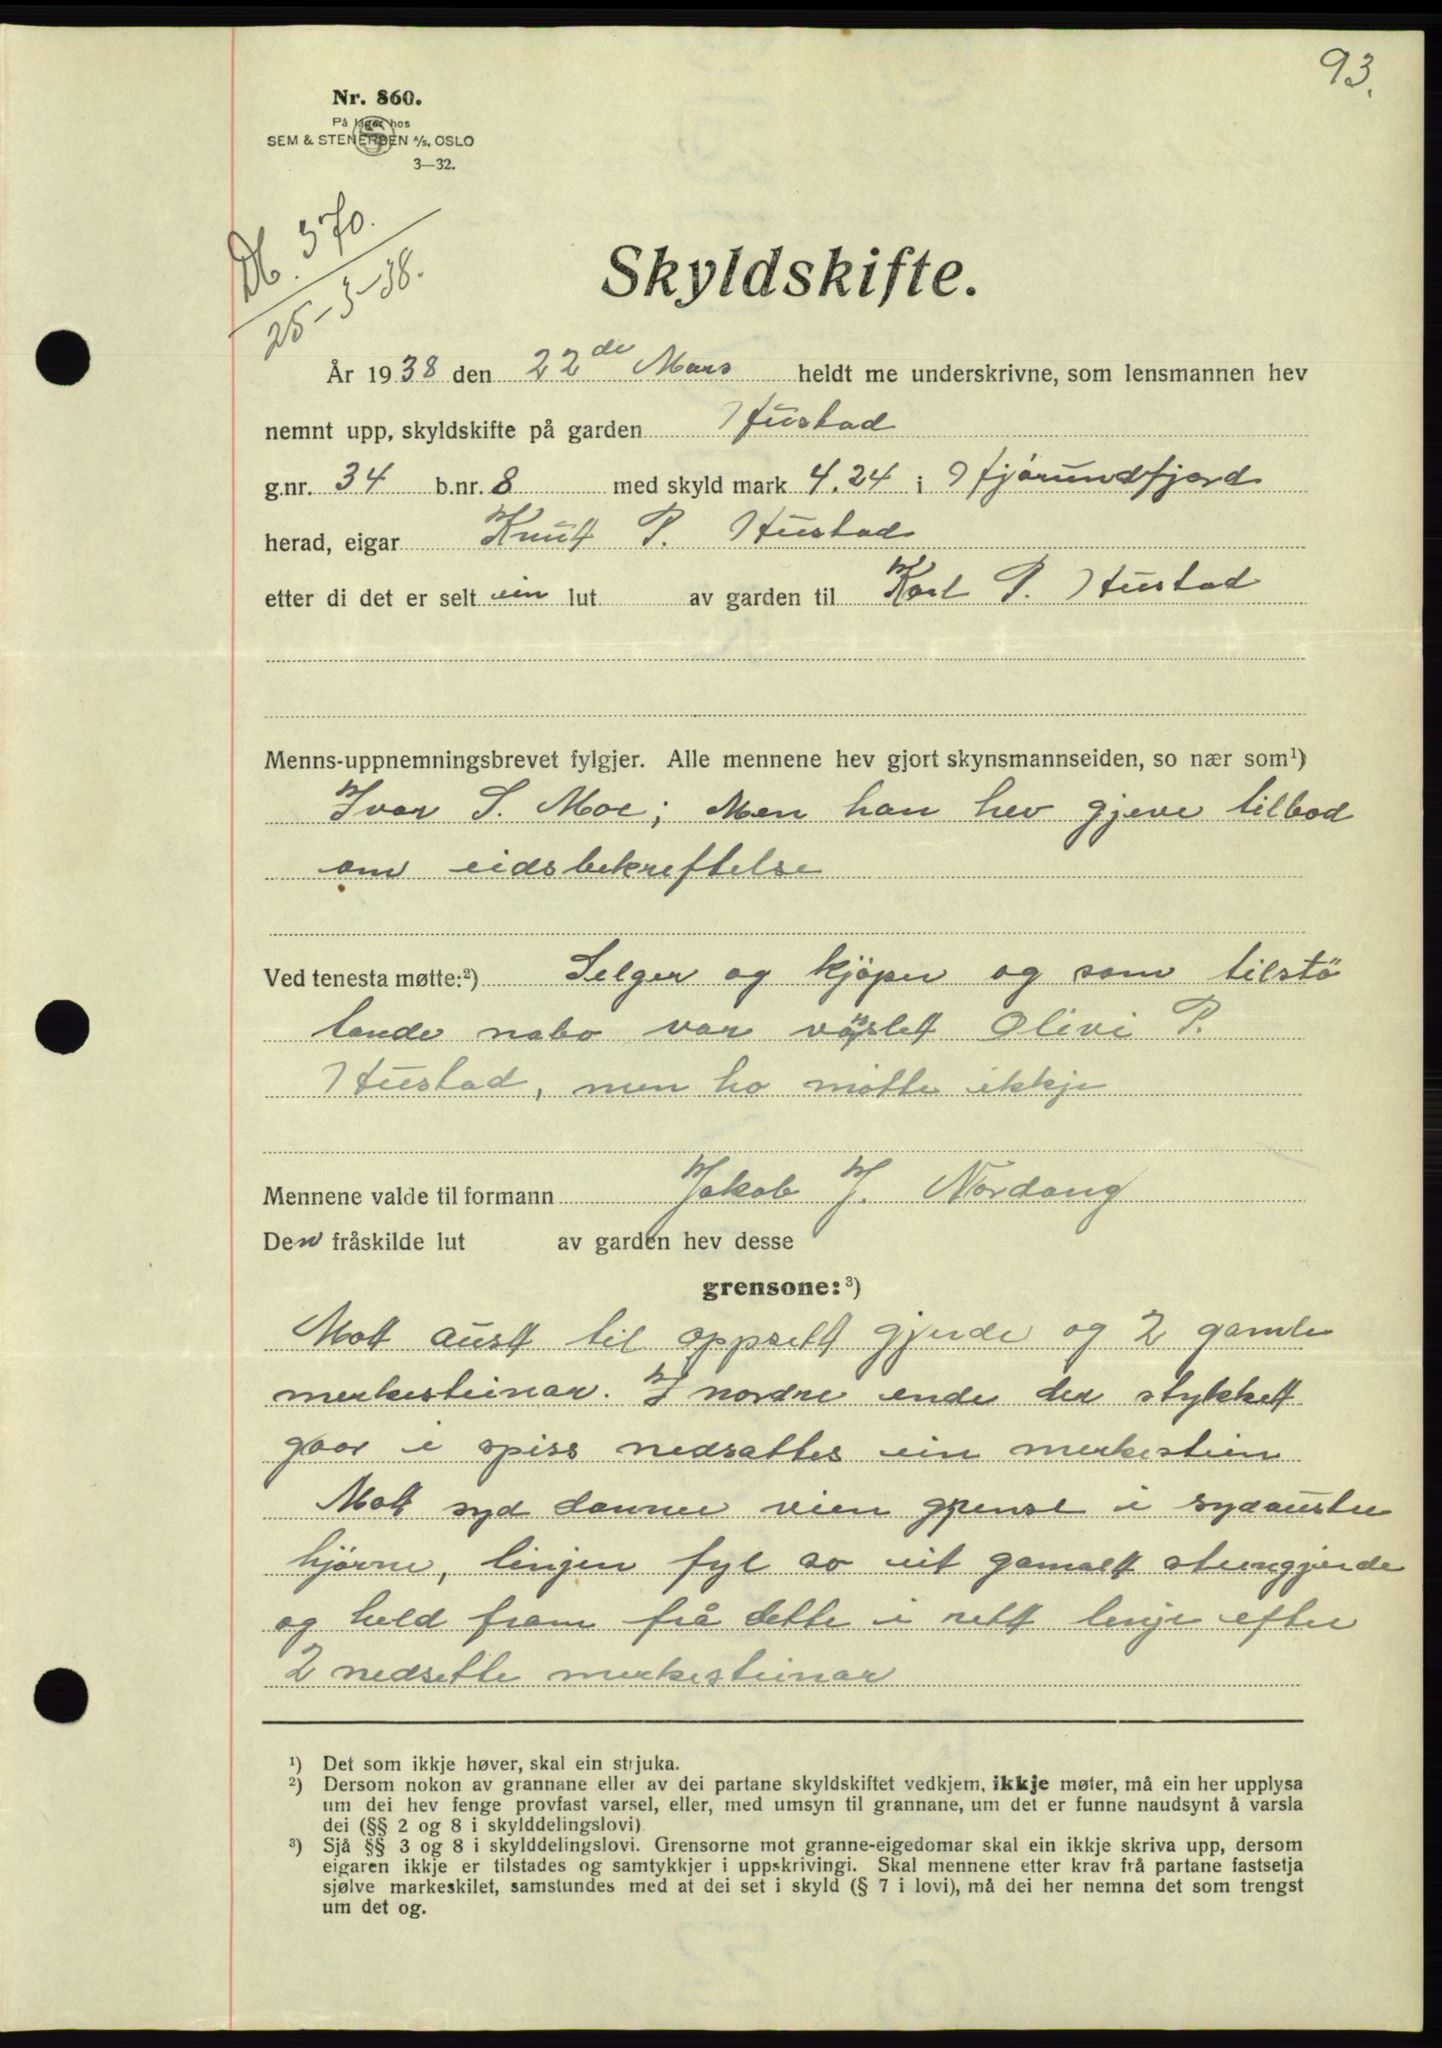 93.
Nr. 860.
På lager hos
SEM & STENERSEN A/S, OSLO
3—32.
Db. 370.
25-3-38.
Skyldskifte.
År 1938 den 22de Mars heldt me underskrivne, som lensmannen hev
nemnt upp, skyldskifte på garden Hustad
g.nr. 34 b.nr. 8 med skyld mark 4.24 i Hjørundfjord
herad, eigar Knut P. Hustad
etter di det er selt ein lut av garden til Karl P. Hustad
Menns-uppnemningsbrevet fylgjer. Alle mennene hev gjort skynsmannseiden, so nær som¹)
Ivar S. Moe; Men han hev gjeve tilbod
om eidsbekreftelse
Ved tenesta møtte:²) Selger og kjøper og som tilstö
tande nabo var varslet Olivi P.
Hustad, men ho møtte ikkje
Mennene valde til formann Jakob J. Nordang
Den fråskilde lut av garden hev desse
grensone:³)
Mott aust til oppsett gjerde og 2 gamle
merkesteinar. I nordre ende der stykket
gaar i spiss nedsattes ein merkestein
Mott syd danner veien grense i sydaustre
hjørne, linjen fyl so eit gamalt steingjerde
og held fram frå dette i rett linje efter
2 nedsette merkesteinar
¹) Det som ikkje høver, skal ein strjuka.
²) Dersom nokon av grannane eller av dei partane skyldskiftet vedkjem, ikkje møter, må ein her upplysa
um dei hev fenge provfast varsel, eller, med umsyn til grannane, um det er funne naudsynt å varsla
dei (§§ 2 og 8 i skylddelingslovi).
³) Sjå §§ 3 og 8 i skylddelingslovi. Grensorne mot granne-eigedomar skal ein ikkje skriva upp, dersom
eigaren ikkje er tilstades og samtykkjer i uppskrivingi. Skal mennene etter krav frå partane fastsetja
sjølve markeskilet, samstundes med at dei set i skyld (§ 7 i lovi), må dei her nemna det som trengst
um det og.